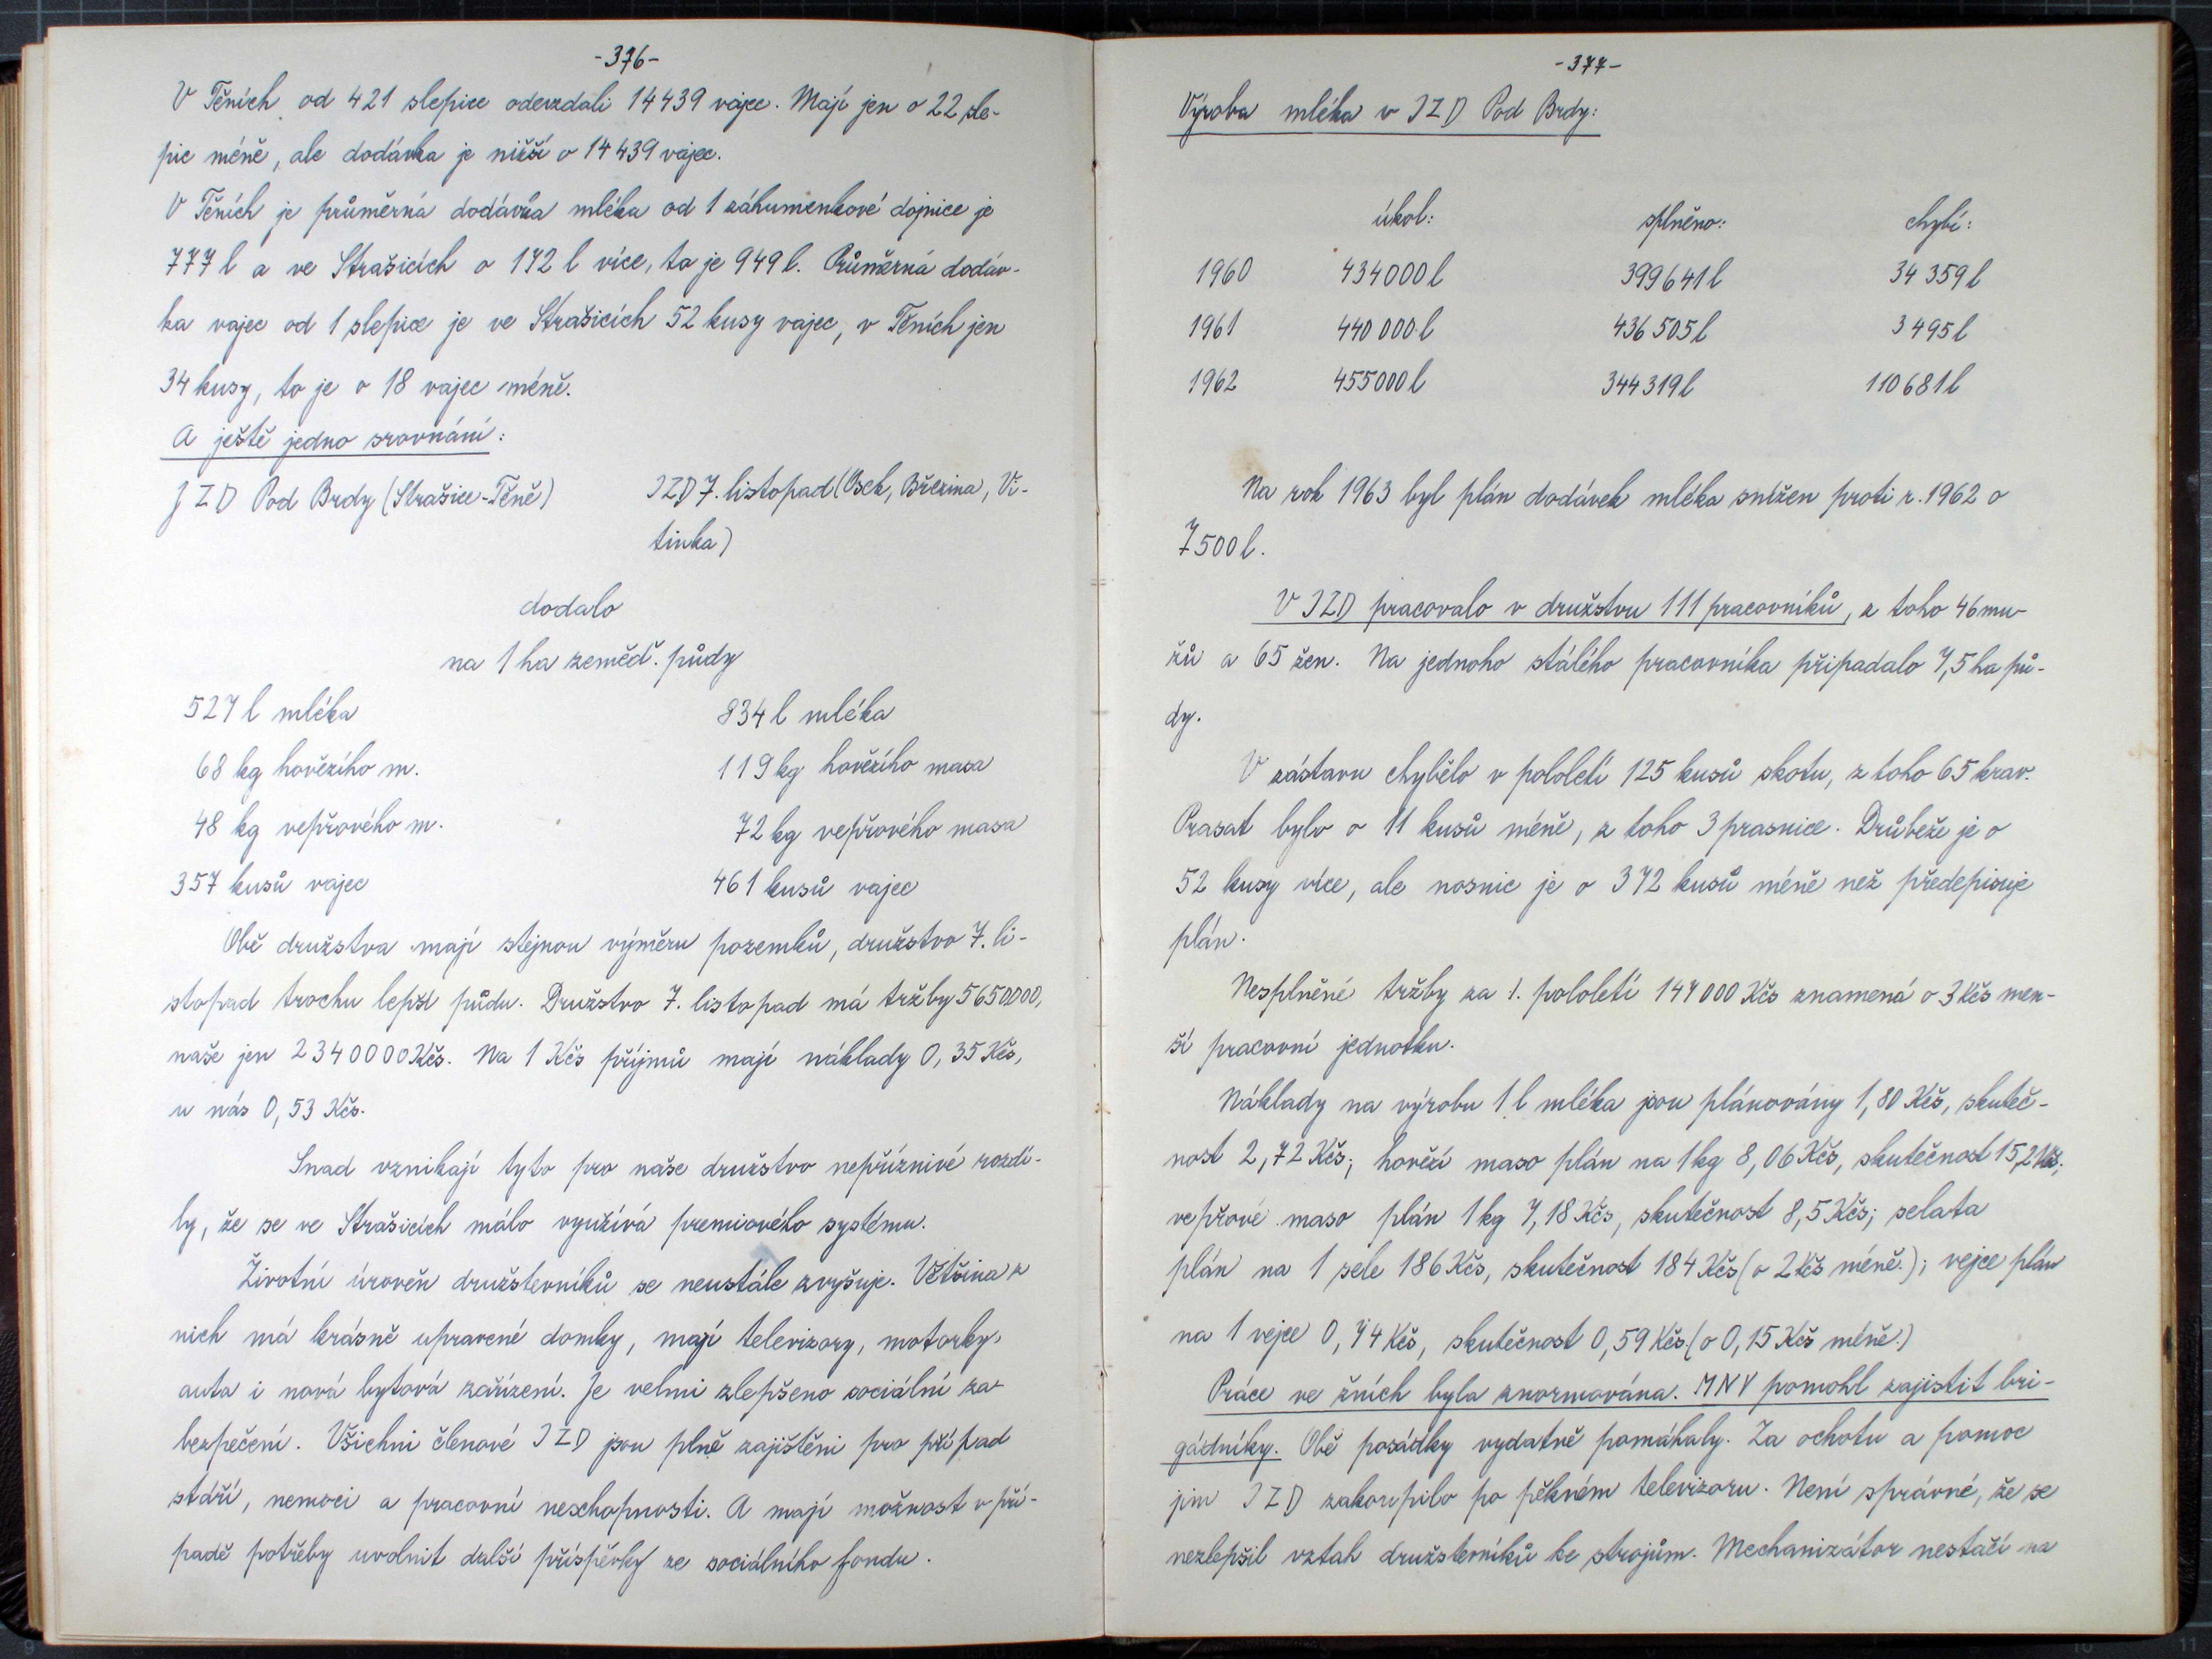 -376-
V Těních od 421 slepice odevzdali 14439 vajec. Mají jen o 22 sle-
pic méně, ale dodávka je nižší o 14439 vajec.
V Těních je průměrná dodávka mléka od 1 záhumenkové dojnice je
777 l a ve Strašicích o 172 l více, to je 949 l. Průměrná dodáv-
ka vajec od 1 slepice je ve Strašicích 52 kusy vajec, v Těních jen
34 kusy, to je o 18 vajec méně.
A ještě jedno srovnání:
JZD Pod Brdy (Strašice-Těně) JZD 7. listopad (Osek, Březina, Vi-
tinka)
dodalo
na 1 ha zeměď. půdy
527 l mléka 834 l mléka
68 kg hovězího m. 119 kg hovězího masa
48 kg vepřového m. 72 kg vepřového masa
357 kusů vajec 461 kusů vajec
Obě družstva mají stejnou výměru pozemků, družstvo 7. li-
stopad trochu lepší půdu. Družstvo 7. listopad má tržby 5650000,
naše jen 2340000 Kčs. Na 1 Kčs příjmů mají náklady 0,35 Kčs,
u nás 0,53 Kčs.
Snad vznikají tyto pro naše družstvo nepříznivé rozdí-
ly, že se ve Strašicích málo využívá premiového systému.
Životní úroveň družstevníků se neustále zvyšuje. Většina z
nich má krásně upravené domky, mají televizory, motorky,
auta i nová bytová zařízení. Je velmi zlepšeno sociální za-
bezpečení. Všichni členové JZD jsou plně zajištěni pro případ
stáří, nemoci a pracovní neschopnosti. A mají možnost v pří-
padě potřeby uvolnit další příspěvky ze sociálního fondu.
-377-
Výroba mléka v JZD Pod Brdy:
úkol: splněno: chybí:
1960 434000 l 399641 l 34359 l
1961 440000 l 436505 l 3495 l
1962 455000 l 344319 l 110681 l
Na rok 1963 byl plán dodávek mléka snížen proti r. 1962 o
7500 l.
V JZD pracovalo v družstvu 111 pracovníků, z toho 46 mu-
žů a 65 žen. Na jednoho stálého pracovníka připadalo 7,5 ha pů-
dy.
V zástavu chybělo v pololetí 125 kusů skotu, z toho 65 krav.
Prasat bylo o 11 kusů méně, z toho 3 prasnice. Drůbeže je o
52 kusy více, ale nosnic je o 372 kusů méně než předepisuje
plán.
Nesplněné tržby za 1. pololetí 147000 Kčs znamená o 3 Kčs men-
ší pracovní jednotku.
Náklady na výrobu 1 l mléka jsou plánovány 1,80 Kčs, skuteč-
nost 2,72 Kčs; hovězí maso plán na 1 kg 8,06 Kčs, skutečnost 15,21 Kčs;
vepřové maso plán 1 kg 7,18 Kčs, skutečnost 8,5 Kčs; selata
plán na 1 sele 186 Kčs, skutečnost 184 Kčs (o 2 Kčs méně.); vejce plán
na 1 vejce 0,74 Kčs, skutečnost 0,59 Kčs. (o 0,15 Kčs méně.)
Práce ve žních byla znormována. MNV pomohl zajistit bri-
gádníky. Obě posádky vydatně pomáhaly. Za ochotu a pomoc
jim JZD zakoupilo po pěkném televizoru. Není správné, že se
nezlepšil vztah družstevníků ke strojům. Mechanizátor nestačí na